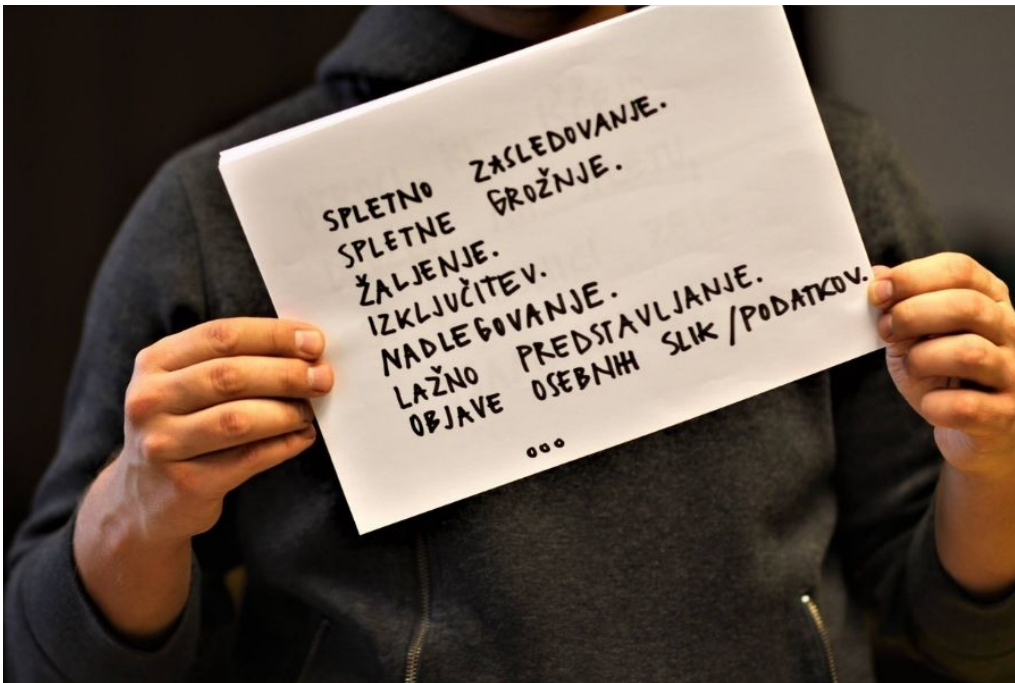 SPLETNO ZASLEDOVANJE.
SPLETNE GROŽNJE.
ŽALJENJE.
IZKLJUČITEV.
NADLEGOVANJE.
LAŽNO PREDSTAVLJANJE.
OBJAVE OSEBNIH SLIK/PODATKOV.
...